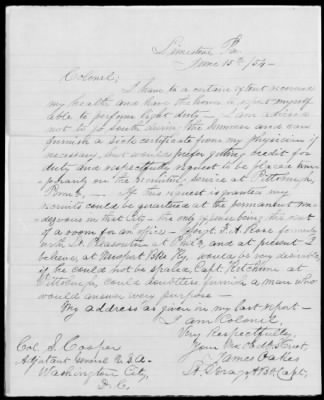 Limestone Pa.
June 15th /54 -
Colonel;
I have to a certain extent recovered
my health and have the honor to report myself
able to perform light duty - I am advised
not to go south during the Summer and can
furnish a sick certificate from my physician if
necessary, but would prefer getting credit for
duty and respectfully request to be placed tem-
porarily on the Recruiting service at Pittsburgh,
Penna. - If this request is granted my
recruits could be quartered at the permanent ren-
dezvous in that City - the only expense being the rent
of a room for an office - Sergt. F. A. Rose formerly
with Lt. Pleasonton at Phila. and at present I
believe, at Newport Bks Ky. would be very desirable
if he could not be spared Capt. Ketchum at
Pittsburgh, could doubtless furnish a man who
would answer every purpose -
My address as given in my last report -
I am Colonel,
Very Respectfully,
Your Obt. Servt,
James Oakes
Lt. Dragns & Bt. Capt.
Col. S. Cooper
Adjutant General U.S.A.
Washington City,
D. C.